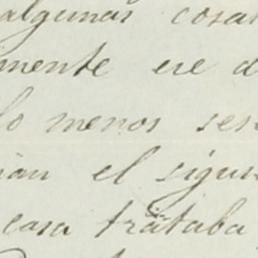 algunas cosas
mente ese d
lo menos ses
ian el sigu
casa trataba